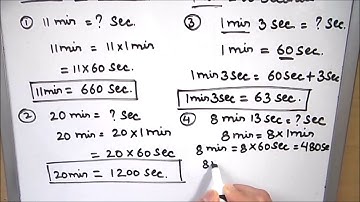 ① 11 min = ? Sec.
11 min = 11 x 1 min
= 11 x 60 Sec.
11 min = 660 Sec.
② 20 min = ? Sec
20 min = 20 x 1 min
= 20 x 60 Sec
20 min = 1200 Sec.
③ 1 min 3 Sec = ? Sec
1 min = 60 Sec
1 min 3 Sec = 60 Sec + 3 Sec
1 min 3 Sec = 63 Sec.
④ 8 min 13 Sec = ? Sec
8 min = 8 x 1 min
8 min = 8 x 60 Sec = 480 Se
8